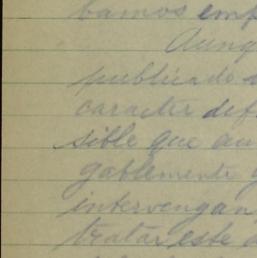 bamos emp
Aunq
publicado
caracter def
sible que au
gablemente
intervengan
tratar este